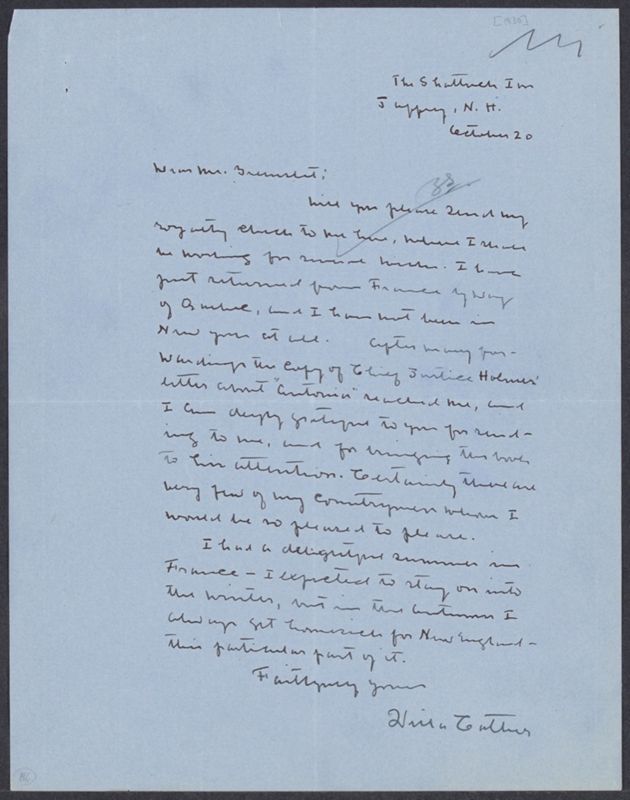 [1930]
The Shattuck Inn
Jaffrey, N. H.
October 20
Dear Mr. Greenslet:
Will you please send my
royalty check to me here, where I shall
be working for several weeks. I have
just returned from France by way
of Quebec, and I have not been in
New York at all. After many for-
wardings the copy of Chief Justice Holmes'
letter about "Antonia" reached me, and
I am deeply grateful to you for send-
ing to me, and for bringing the book
to his attention. Certainly there are
very few of my countrymen whom I
would be so pleased to please.
I had a delightful summer in
France - I expected to stay on into
the winter, but in the autumn I
always get homesick for New England -
this particular part of it.
Faithfully yours
Willa Cather